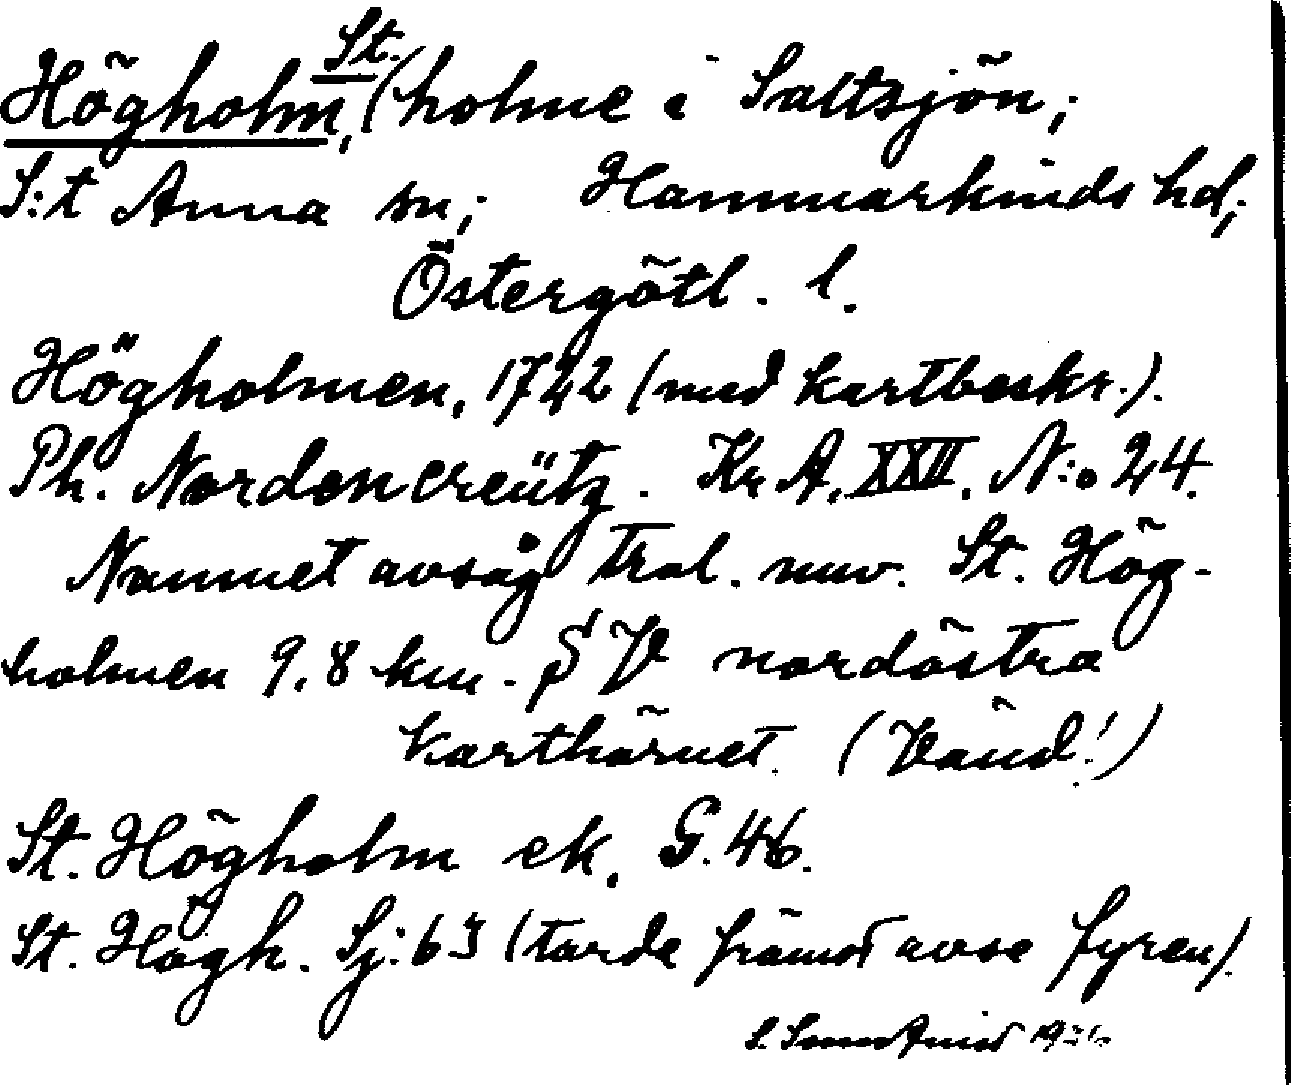 Högholm, St. (holme i Saltsjön;
S:t Anna sn; Hammarkinds hd;
Östergötl. l.
Högholmen, 1722 (med kartbeskr.).
Ph. Nordencreütz. Kr. A. XXII. N:o 24.
Namnet avsåg trol. nuv. St. Hög-
holmen 9,8 km. SV nordöstra
karthörnet. (Vänd!)
St. Högholm ek. G. 46.
St. Högh. Sj: 63 (torde främst avse fyren).
1936